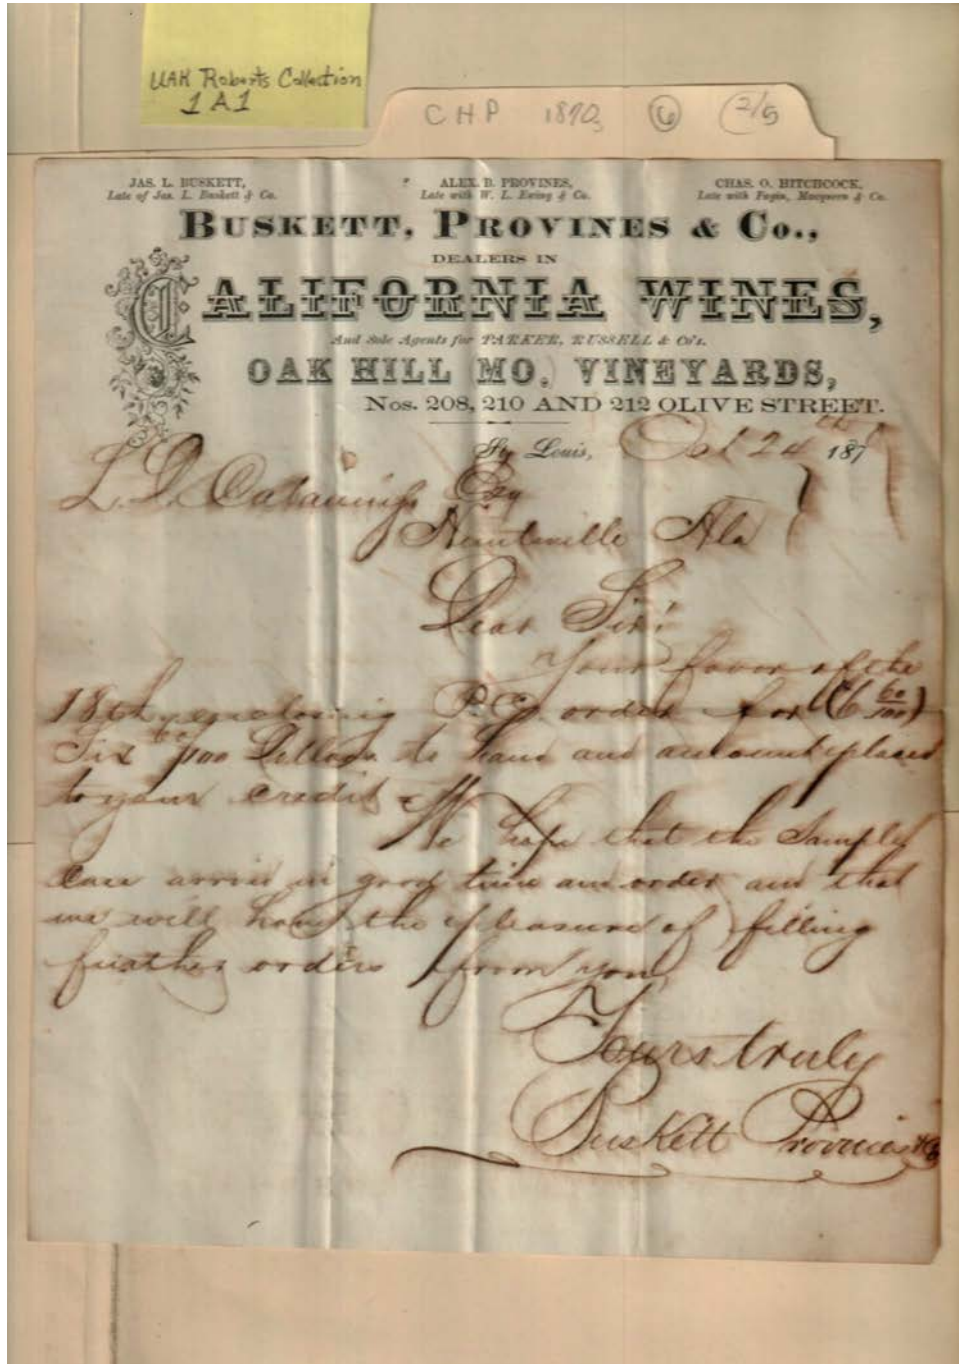 UAH Roberts Collection
1 A 1
CHP 1870s 6 2/5
JAS. L. BUSKETT,
Late of Jas. L. Buskett & Co.
ALEX. B. PROVINES,
Late with W. L. Ewing & Co.
CHAS. O. HITCHCOCK,
Late with Fagin, & Co.
BUSKETT, PROVINES & Co.,
DEALERS IN
CALIFORNIA WINES,
And Sole Agents for PARKER, RUSSELL & CO'S.
OAK HILL MO. VINEYARDS,
Nos. 208, 210 AND 212 OLIVE STREET.
St. Louis, Oct 24th 187
Esq
Huntsville Ala
Dear Sir:
Your favor of the
18th enclosing P.O. order for (6 60/100)
Six 60/100 Dollars to hand and amount placed
to your credit. We hope that the Sample
Case arrive in good time and order and that
we will have the pleasure of filling
further orders from you
Yours truly
Buskett Provines & Co